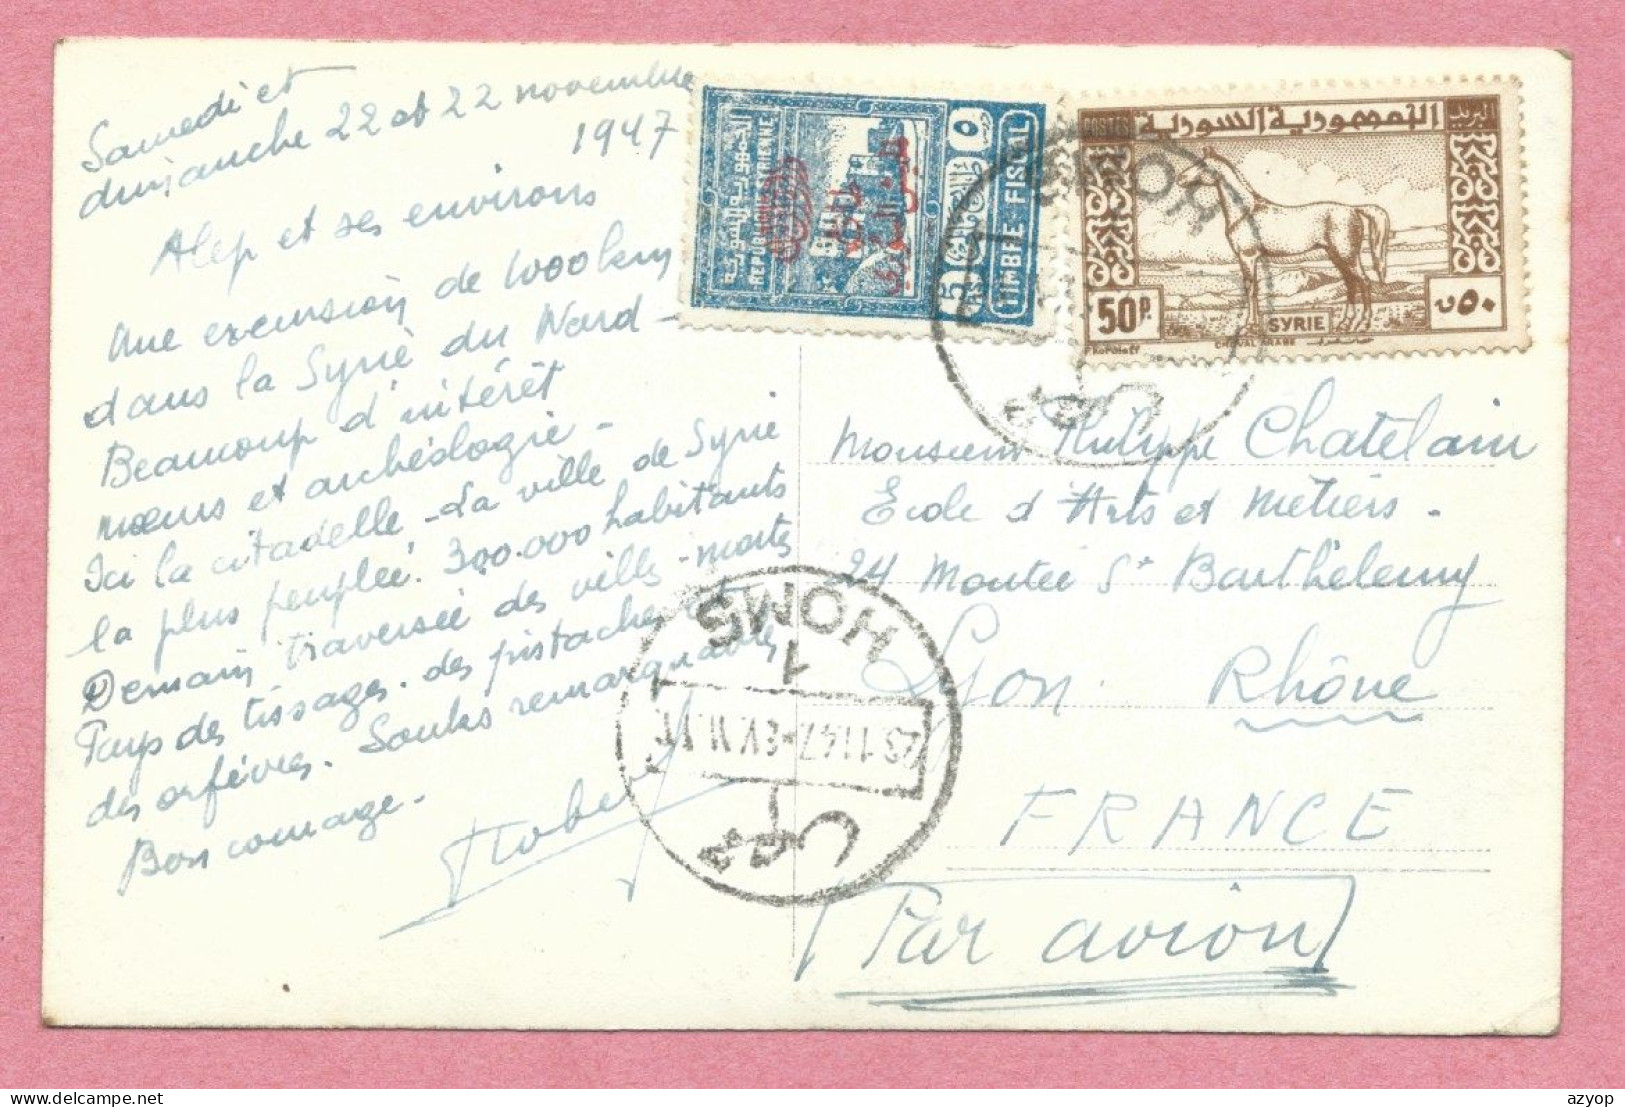 Samedi et
dimanche 22 et 22 novembre
1947
Alep et ses environs
Une excursion de 1000 km
dans la Syrie du Nord -
Beaucoup d'intérêt
mœurs et archéologie -
Ici la citadelle - La ville de Syrie
la plus peuplée. 300.000 habitants
Demain traversée des villes-mortes
Pays des tissages. des pistaches et
des orfèvres. Souks remarquables
Bon courage.
الجمهورية السورية
REPUBLIQUE SYRIENNE
TIMBRE FISCAL
5
٥
الجمهورية السورية
POSTES
البريد
50 P.
SYRIE
٥٠
CHEVAL ARABE
HOMS
حمص
Monsieur Philippe Chatelain
Ecole d'Arts et Métiers -
24 Montée St Barthélemy
Lyon. Rhône
FRANCE
Par avion
HOMS
1
حمص
azyop